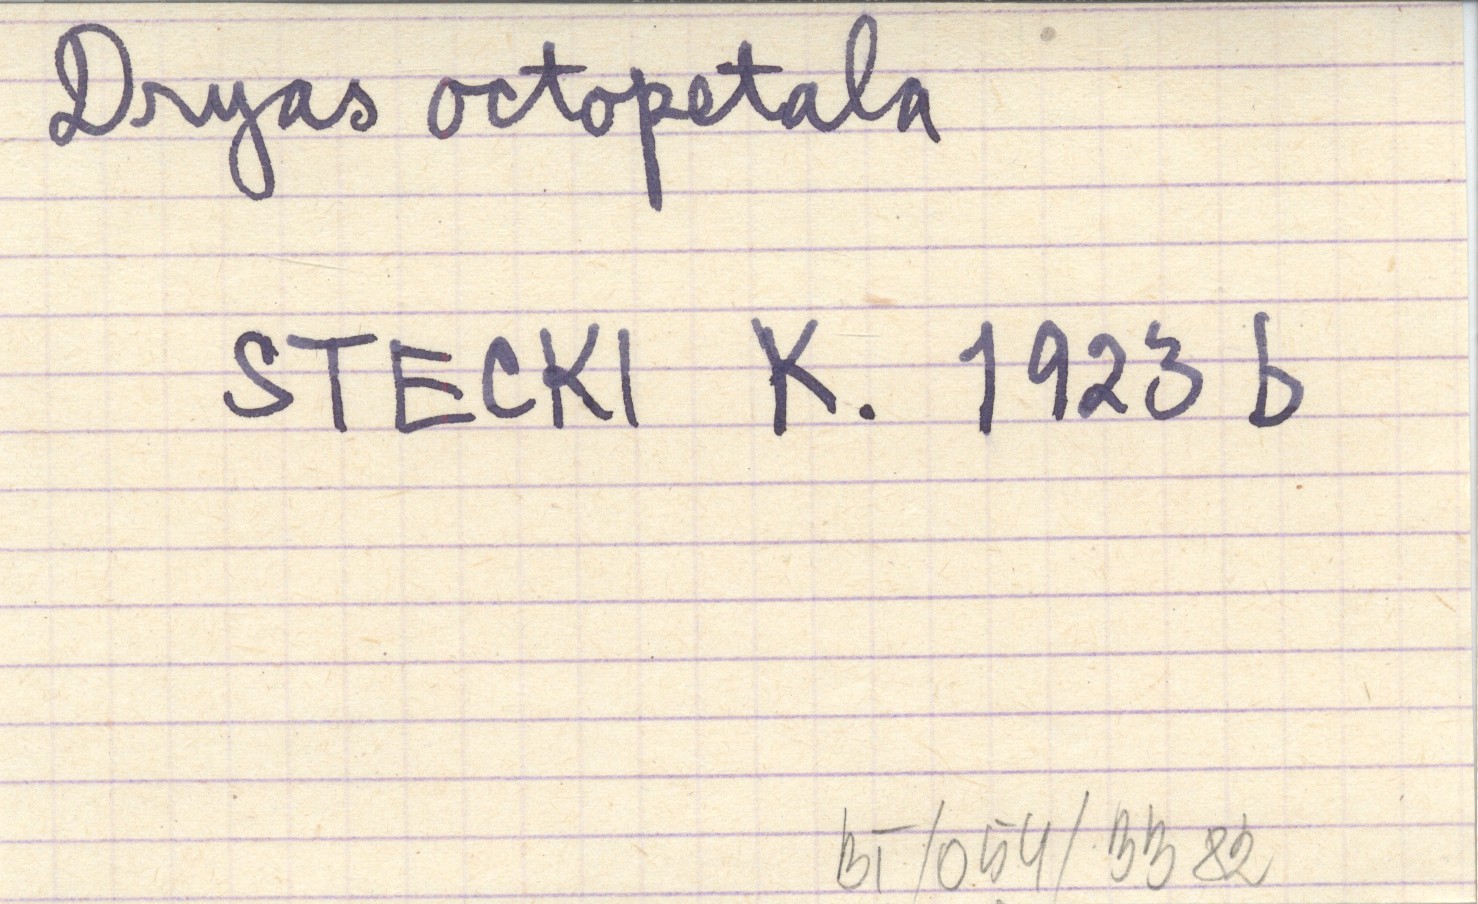 Dryas octopetala
STECKI K. 1923 b
BT/054/BB 82